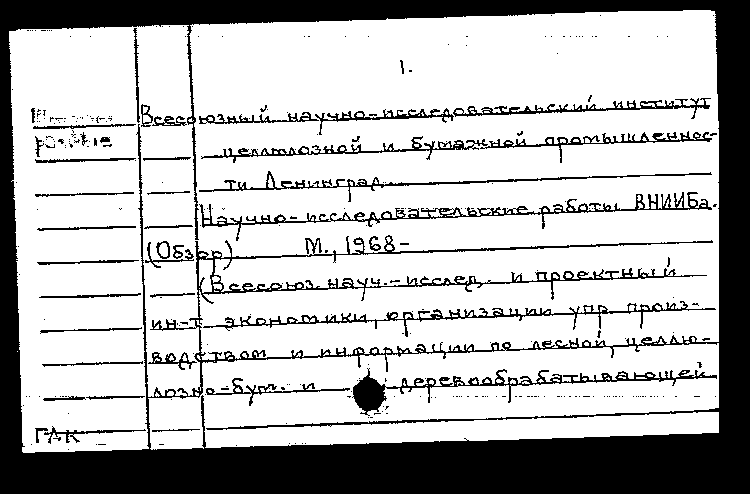 1.
Всесоюзный научно-исследовательский институт
целлюлозной и бумажной промышленнос-
ти. Ленинград
Научно-исследовательские работы ВНИИБа.
(Обзор). М., 1968-
(Всесоюз. науч.-исслед. и проектный
ин-т экономики, организации упр. произ-
водством и информации по лесной, целлю-
лозно-бум. и деревообрабатывающей
ГАК